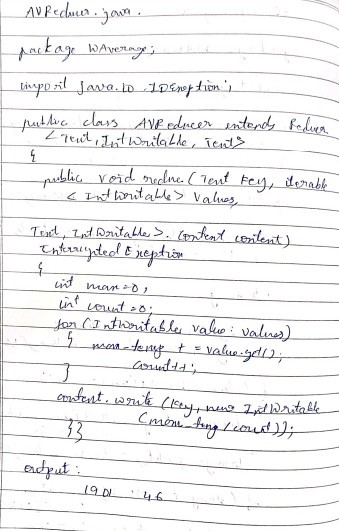 AVReducer.java.
package WAverage;
import java.io.IOException;
public class AVReducer extends Reducer
<Text, IntWritable, Text>
{
public void reduce (Text key, iterable
<IntWritable> values,
Text, IntWritable>. Context context)
Interrupted Exception
{
int max=0;
int count=0;
for (IntWritable value: values)
{ max_temp + = value.get();
count++;
}
context.write (key, new IntWritable
(max_temp/count));
}}
output:
1901 46